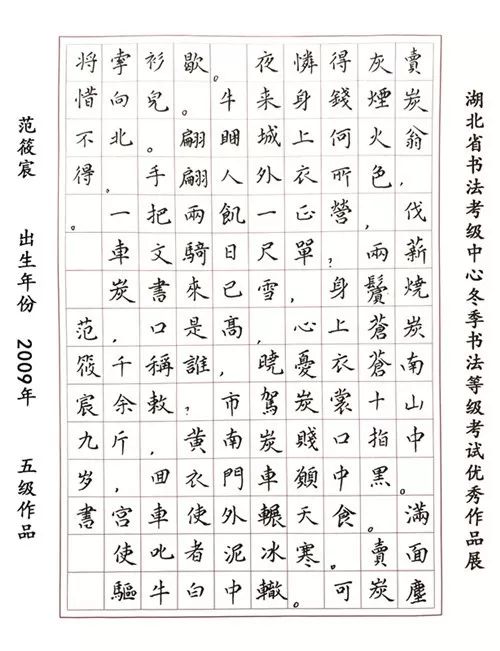 湖北省书法考级中心冬季书法等级考试优秀作品展
賣炭翁，伐薪燒炭南山中。滿面塵
灰煙火色，兩鬢蒼蒼十指黑。賣炭
得錢何所營？身上衣裳口中食。可
憐身上衣正單，心憂炭賤願天寒。
夜来城外一尺雪，曉駕炭車輾冰轍
。牛睏人飢日已高，市南門外泥中
歇。翩翩兩騎來是誰？黄衣使者白
衫兒。手把文書口稱敕，回車叱牛
牽向北。一車炭，千余斤，宮使驅
将惜不得。范筱宸九岁書
范筱宸 出生年份 2009年 五级作品